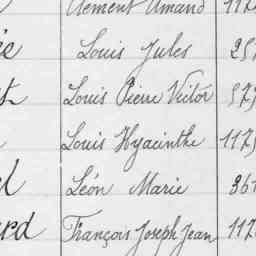 Clément Amand 117
Louis Jules 257
Louis Pierre Victor 573
Louis Hyacinthe 1175
Léon Marie 361
François Joseph Jean 117